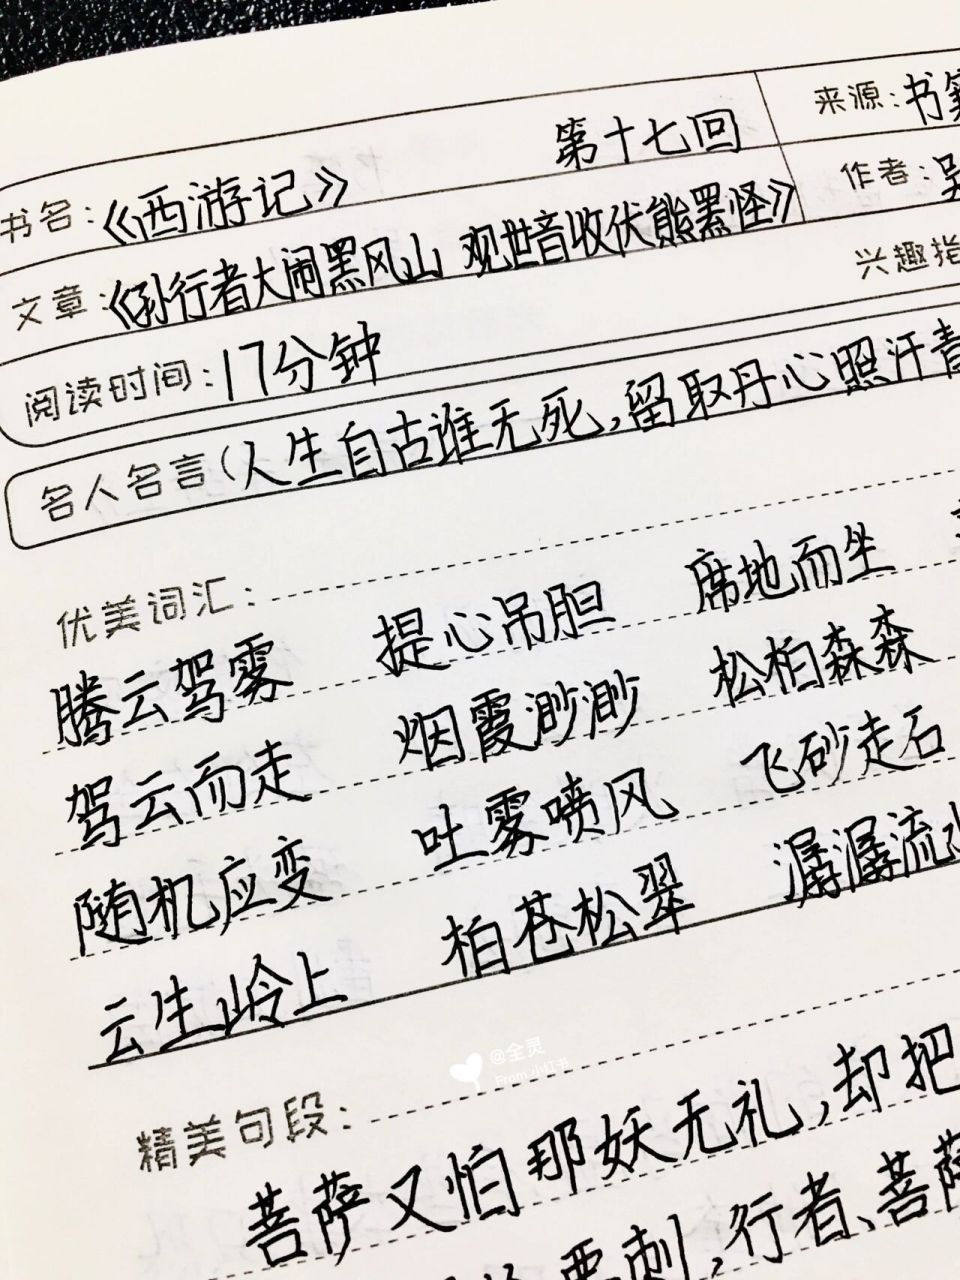 书名:《西游记》 第十七回 来源:书
文章:《孙行者大闹黑风山 观世音收伏熊罴怪》 作者:吴
阅读时间:17分钟 兴趣指
名人名言(人生自古谁无死,留取丹心照汗青
优美词汇:
腾云驾雾 提心吊胆 席地而坐
驾云而走 烟霞渺渺 松柏森森
随机应变 吐雾喷风 飞砂走石
云生岭上 柏苍松翠 潺潺流水
@全灵
From 小红书
精美句段:
菩萨又怕那妖无礼,却把
要刺,行者、菩萨